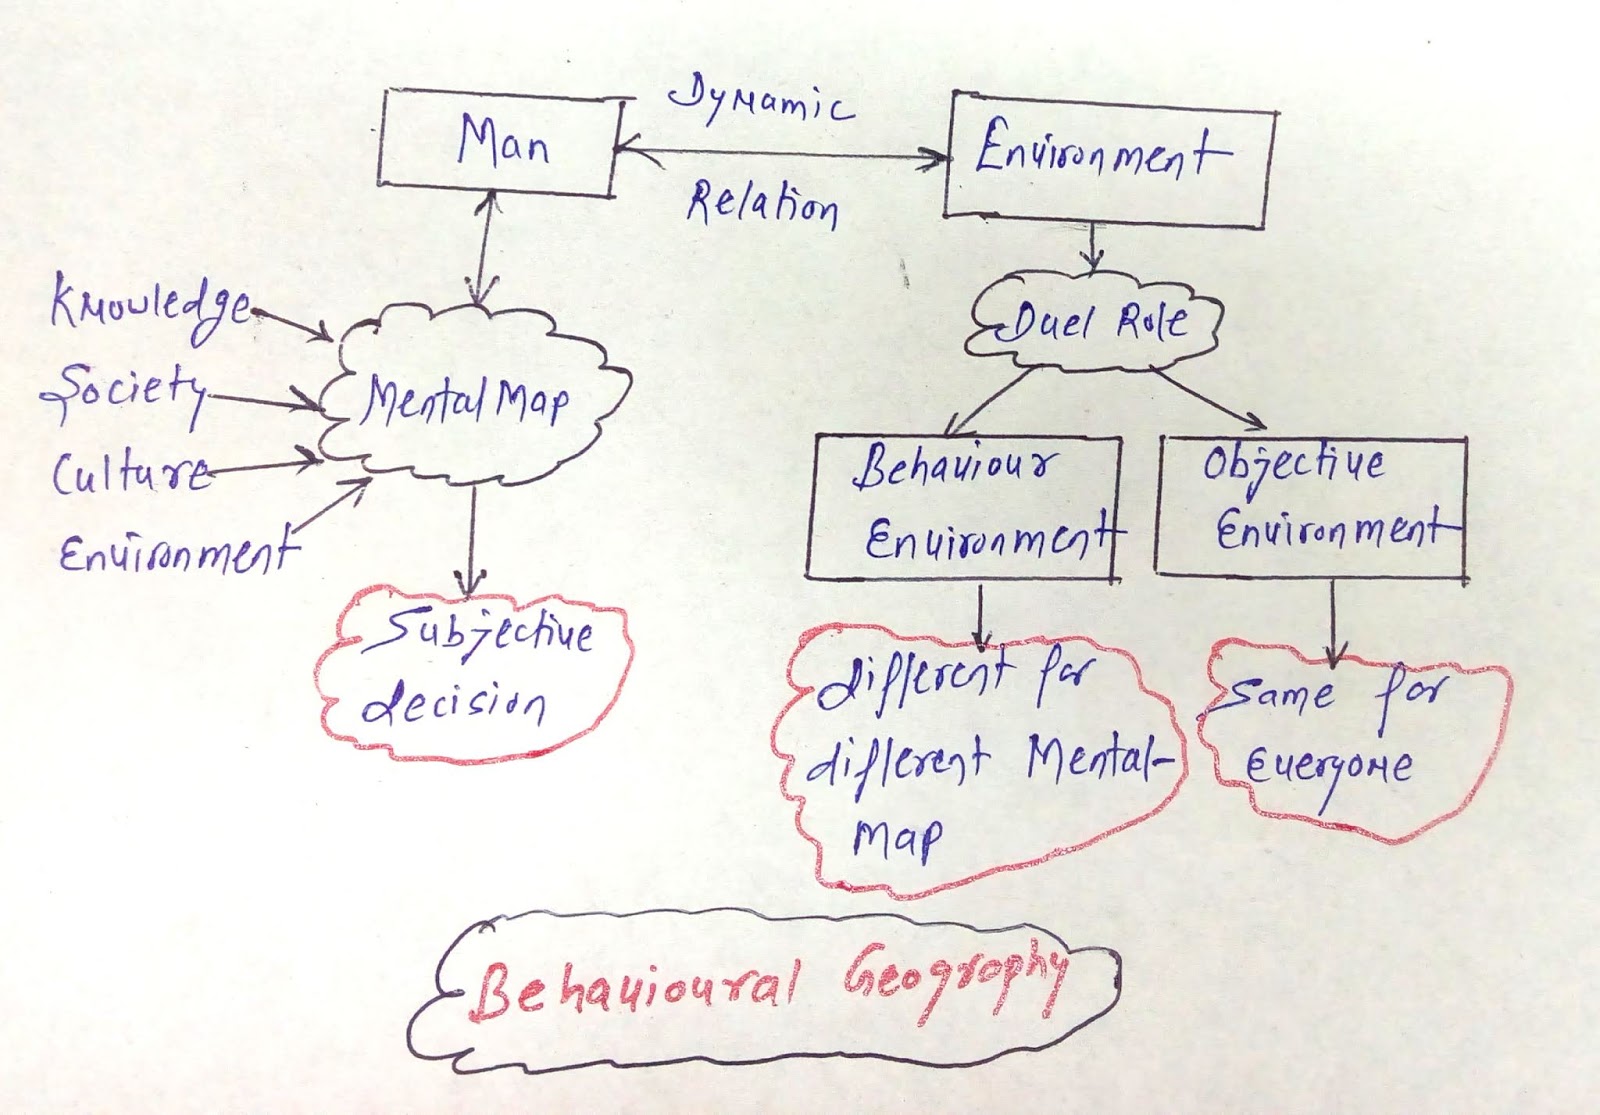 Man
Dynamic
Relation
Environment
Knowledge
Society
Culture
Environment
Mental Map
Subjective
decision
Duel Role
Behaviour
Environment
Objective
Environment
different for
different Mental-
Map
Same for
Everyone
Behavioural Geography